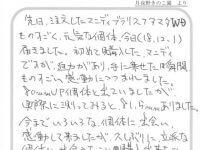 月夜野きのこ園 より
先日、注文したマンディブラリスフタマタW♀
ものすごく、元気な個体、今日(18.12.1)
届きました。初めて購入した、マンディ
ですが、迫力があり、手に乗せた瞬間
ものすごい、感動につつまれました。
80mmUP個体と出ていましたが
実際に測ってみると、81.5mmありました。
今までいろいろな個体に出会い、
感動して来ましたが、久しぶりに立派な